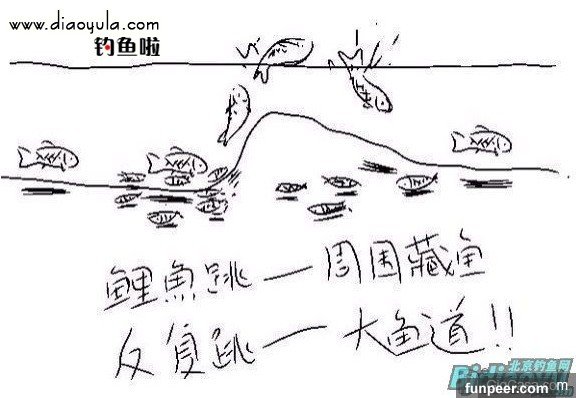 www.diaoyula.com
钓鱼啦
鲤魚跳—周围藏鱼
反复跳—大鱼道!!
北京钓鱼网
www.funpeer.com